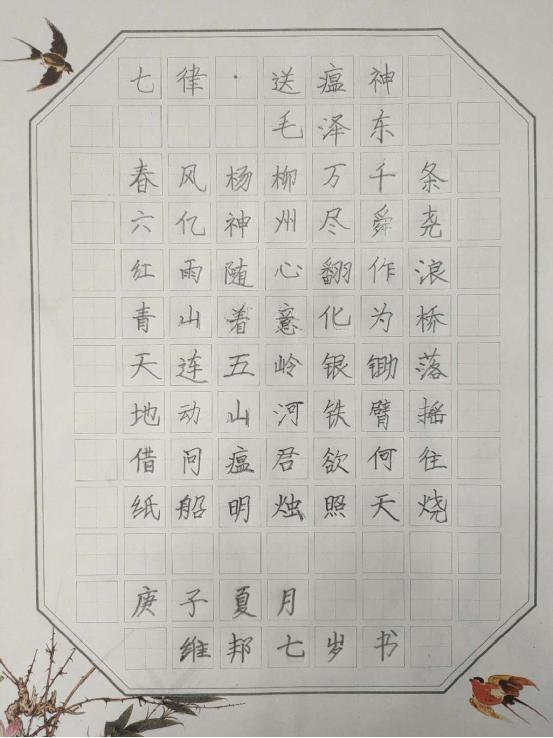 七律·送瘟神
毛泽东
春风杨柳万千条
六亿神州尽舜尧
红雨随心翻作浪
青山着意化为桥
天连五岭银锄落
地动山河铁臂摇
借问瘟君欲何往
纸船明烛照天烧
庚子夏月
维邦七岁书